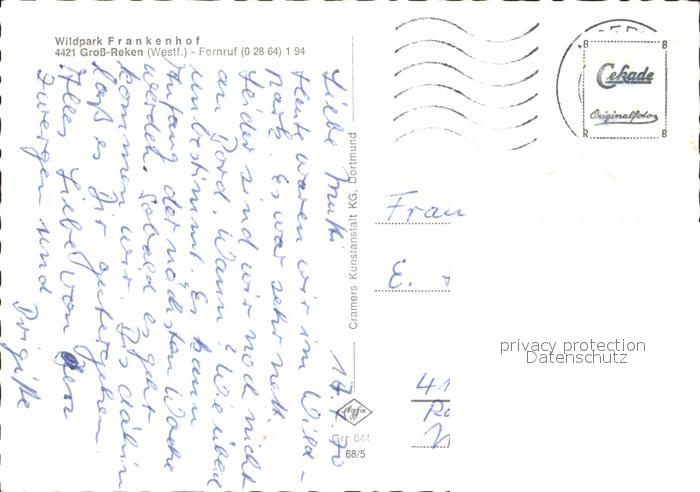 Wildpark Frankenhof
4421 Groß-Reken (Westf.) - Fernruf (0 28 64) 1 94
Cekade
Originalfoto
Cramers Kunstanstalt KG, Dortmund
Agfa
68/5
Frau
E.
41
privacy protection
Datenschutz
Liebe Mutti
Heute waren wir im Wild-
park. Es war sehr nett.
Leider sind wir noch nicht
an Bord. Wann? Wie üblich
unbestimmt. Es kann
Anfang der nächsten Woche
werden. Sobald es geht
kommen wir. Bis dahin
laß es Dir gutergehen.
Alles Liebe von den
Zwergen und
Brigitte